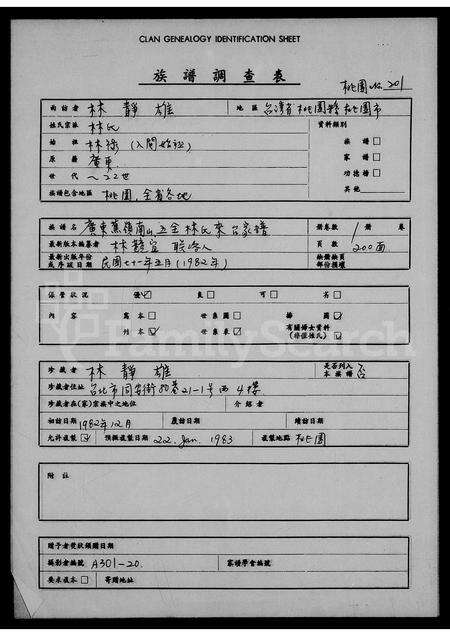 CLAN GENEALOGY IDENTIFICATION SHEET
族譜調查表
桃園 No. 201
面訪者 林靜雄 地區 台灣省桃園縣桃園市
姓氏宗族 林氏 資料類別
始祖 林祿(入閩始祖) 族譜□
原籍 廣東 家譜□
世代 ~22世 功德榜□
族譜包含地區 桃園,全省各地 其他
族譜名 廣東蕉嶺南山五全林氏來台家譜 冊卷數 1 冊 卷
最新版本編纂者 林 聯絡人 頁數 200面
最新出版年份或序跋日期 民國七十一年五月(1982年) 檢體缺頁部份損壞
保管狀況 優☑ 良□ 可□ 劣□
內容 寫本□ 世系圖□ 插圖☑
刊本☑ 世系章☑ 有關婦女資料(非僅姓氏)☑
珍藏者 林靜雄 是否列入本族譜 否
珍藏者住址 台北市同安街 巷21-1号 4樓
珍藏者在(家)宗族中之地位 介紹者
初訪日期 1982年12月 覆訪日期 續訪日期
允許複製☑ 預拟複製日期 22. Jan. 1983 複製地點 桃園
附註
贈予者發狀領贈日期
攝影者編號 A301-20. 家譜學會編號
要求複本□ 寄贈地址
FamilySearch